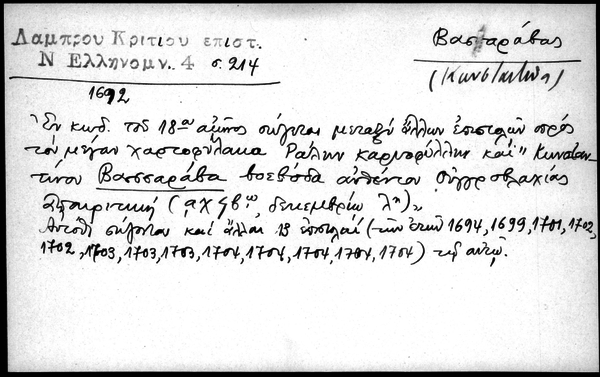 Λαμπρου Κριτιου επιστ.
Ν Ελληνομν. 4 σ. 214
Βασσαράβας
(Κωνσταντῖνος)
1692
Ἐν κώδ. τοῦ 18ου αἰῶνος σώζεται μεταξὺ ἄλλων ἐπιστολῶν πρὸς
τὸν μέγαν χαρτοφύλακα Ράλην καρυοφύλλην καὶ " Κωνσταν-
τίνου Βασσαράβα βοεβόδα αὐθέντου Οὐγγροβλαχίας
(͵αχϟβω, δεκεμβρίῳ λη) "
Αὐτόθι σώζονται καὶ ἄλλαι 13 ἐπιστολαί (τῶν ἐτῶν 1694, 1699, 1701, 1702,
1702, 1703, 1703, 1703, 1704, 1704, 1704, 1704, 1704) τοῦ αὐτοῦ.